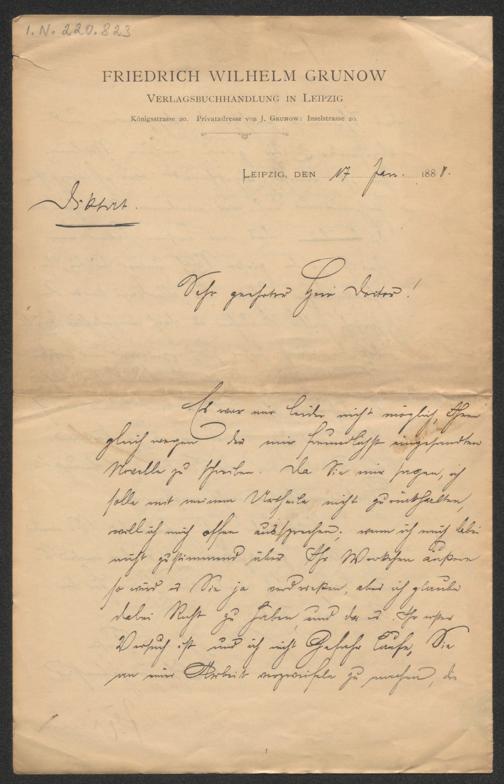 I. N. 220.823
FRIEDRICH WILHELM GRUNOW
VERLAGSBUCHHANDLUNG IN LEIPZIG
Königsstrasse 20. Privatadresse von J. GRUNOW: Inselstrasse 20.
LEIPZIG, DEN 17 Jan. 1888.
Diktat.
Sehr geehrter Herr Doctor!
Es war mir leider nicht möglich, Ihnen
gleich wegen der mir freundlichst eingesandten
Novelle zu schreiben. Da Sie mir sagen, ich
solle mit meinem Urtheile nicht zurückhalten,
will ich mich offen aussprechen; wenn ich mich dabei
nicht zustimmend über Ihr Werkchen äußere
so wird es Sie ja verdrießen, aber ich glaube
dabei Recht zu haben, und da es Ihr erster
Versuch ist und ich nicht Gefahr laufe, Sie
an einer Arbeit verzweifeln zu machen, die